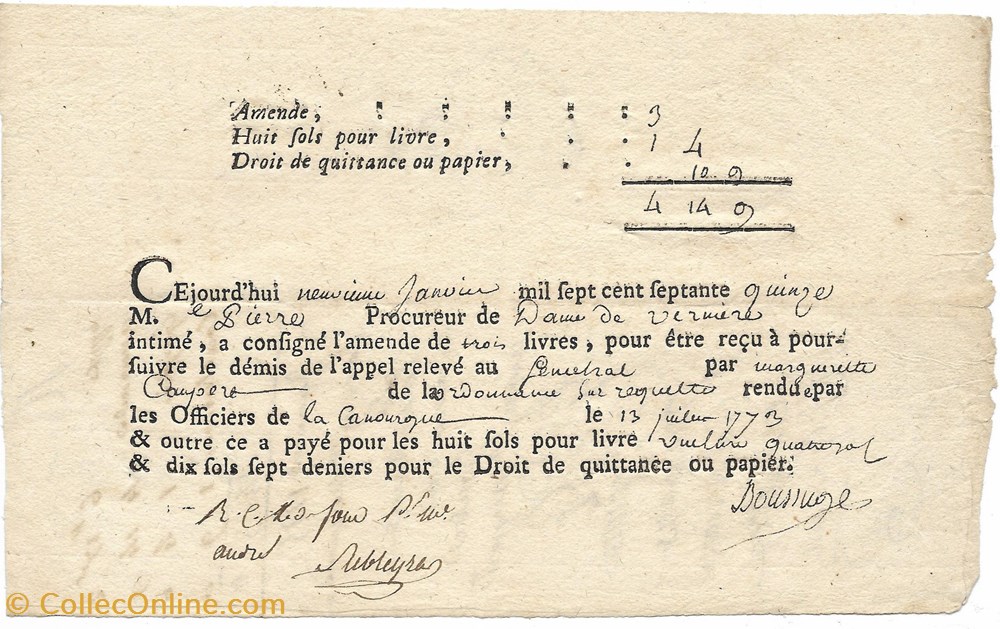 Amende, 3
Huit sols pour livre, 1 4
Droit de quittance ou papier, 10 9
4 14 9
CEjourd'hui neuvieme Janvier mil sept cent septante quinze
M.e Pierre Procureur de Dame de
intimé, a consigné l'amende de trois livres, pour être reçu à pour-
suivre le démis de l'appel relevé au Senechal par margueritte
de la ordonnance sur requette rendue par
les Officiers de la Canourgue le 13 juillet 1773
& outre ce a payé pour les huit sols pour livre
& dix sols sept deniers pour le Droit de quittance ou papier.
andré
© CollecOnline.com